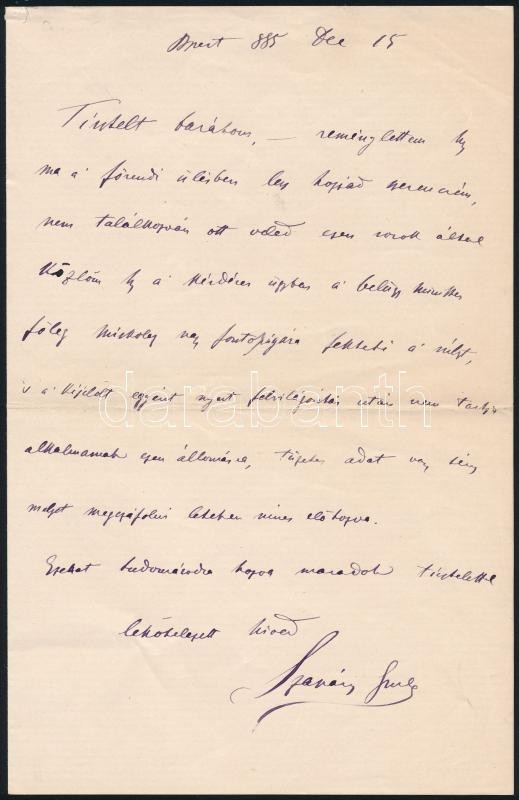 Bpest 885 Dec 15
Tisztelt barátom, — reménylettem hogy
ma a' főrendi ülésben lesz hozzád szerencsém,
nem találkozván ott veled ezen sorok által
közlöm hogy a' kérdéses ügyben a' belügyminister
főleg Miskolcz nagy fontoságára fekteti a' súlyt,
's a' kijelölt egyént nyert felvilágosítás után nem tartja
alkalmasnak ezen állomásra, tüzetes adat vagy tény
melyet megczáfolni lehetne nincs előhozva.
Ezeket tudomásodra hozva maradok tisztelettel
lekötelezett hived
Szapáry Gyula
darabanth